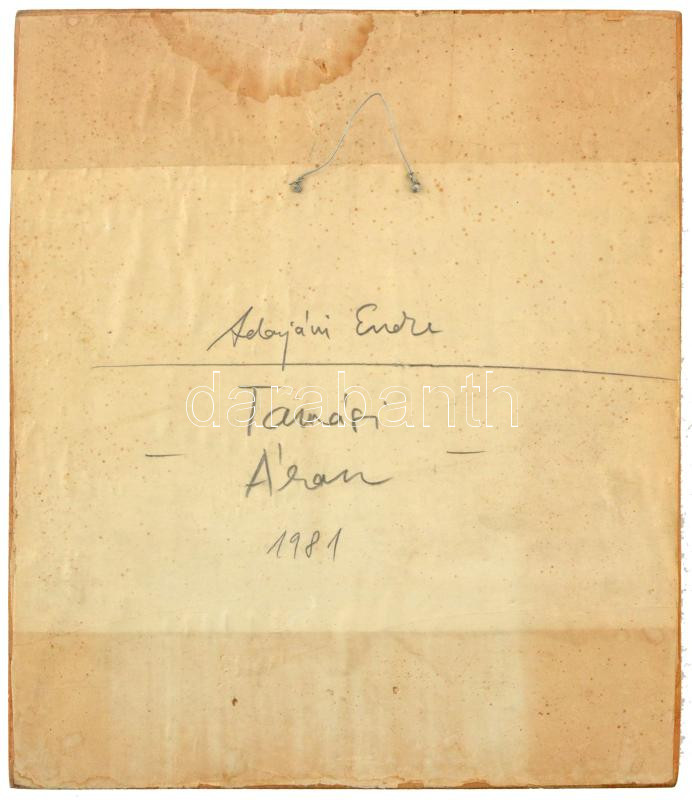 Adorjáni Endre
darabanth
Tamási
Áron
1981